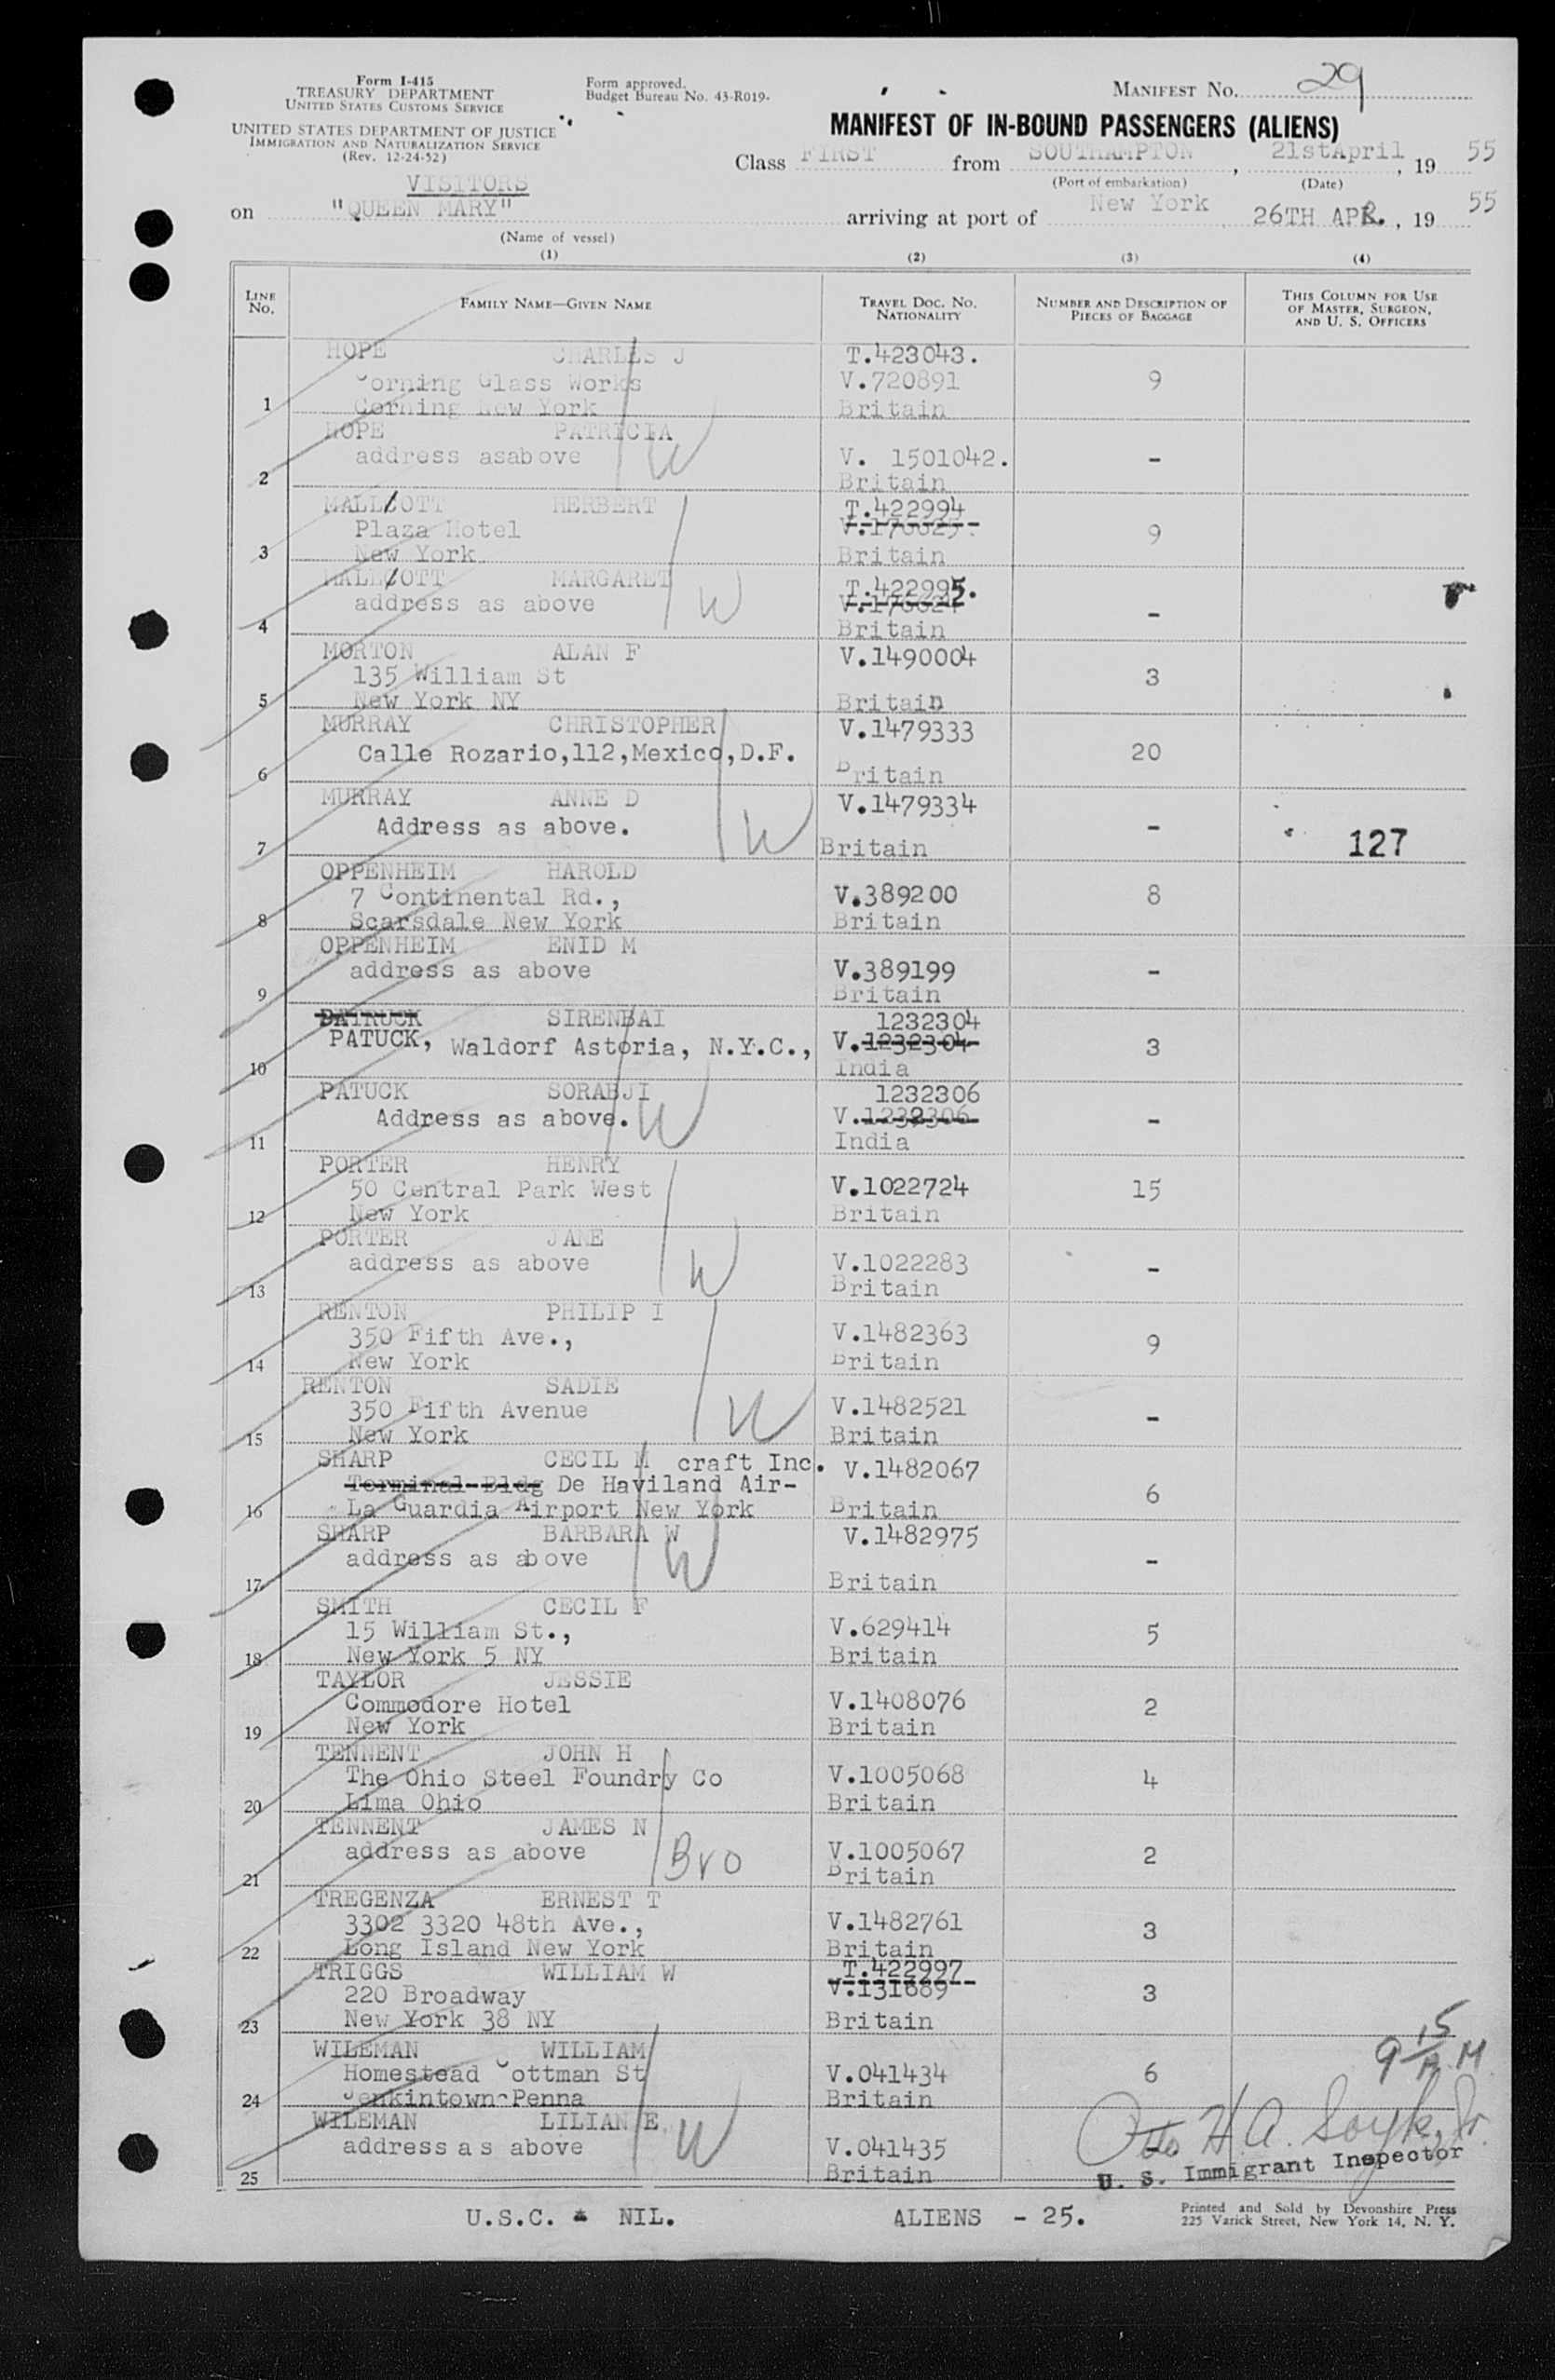 Form I-415
TREASURY DEPARTMENT
UNITED STATES CUSTOMS SERVICE
UNITED STATES DEPARTMENT OF JUSTICE
IMMIGRATION AND NATURALIZATION SERVICE
(Rev. 12-24-52)
Form approved.
Budget Bureau No. 43-R019.
MANIFEST NO. 29
MANIFEST OF IN-BOUND PASSENGERS (ALIENS)
Class FIRST from SOUTHAMPTON, 21stApril, 19 55
(Port of embarkation) (Date)
VISITORS
on "QUEEN MARY" arriving at port of New York 26TH APR., 19 55
(Name of vessel)
(1) (2) (3) (4)
LINE NO. FAMILY NAME—GIVEN NAME TRAVEL DOC. NO. NATIONALITY NUMBER AND DESCRIPTION OF PIECES OF BAGGAGE THIS COLUMN FOR USE OF MASTER, SURGEON, AND U. S. OFFICERS
HOPE CHARLES J T.423043.
Corning Glass Works V.720891 9
1 Corning New York Britain
HOPE PATRICIA
address asabove V. 1501042. -
2 W Britain
MALL/OTT HERBERT T.422994
Plaza Hotel 9
3 New York Britain
MALL/OTT MARGARET T.422995.
address as above W -
4 Britain
MORTON ALAN F V.1490004
135 William St 3
5 New York NY Britain
MURRAY CHRISTOPHER V.1479333
Calle Rozario,112,Mexico,D.F. 20
6 Britain
MURRAY ANNE D V.1479334
Address as above. W -
7 Britain 127
OPPENHEIM HAROLD
7 Continental Rd., V.389200 8
8 Scarsdale New York Britain
OPPENHEIM ENID M
address as above V.389199 -
9 Britain
DATRUCK SIRENBAI 1232304
PATUCK, Waldorf Astoria, N.Y.C., V.1232304 3
10 India
PATUCK SORABJI 1232306
Address as above. W V.1232306 -
11 India
PORTER HENRY
50 Central Park West V.1022724 15
12 New York Britain
PORTER JANE
address as above W V.1022283 -
13 Britain
RENTON PHILIP I
350 Fifth Ave., V.1482363 9
14 New York Britain
RENTON SADIE
350 Fifth Avenue W V.1482521 -
15 New York Britain
SHARP CECIL M craft Inc. V.1482067
Terminal Bldg De Haviland Air- 6
16 La Guardia Airport New York Britain
SHARP BARBARA W V.1482975
address as above W -
17 Britain
SMITH CECIL F
15 William St., V.629414 5
18 New York 5 NY Britain
TAYLOR JESSIE
Commodore Hotel V.1408076 2
19 New York Britain
TENNENT JOHN H
The Ohio Steel Foundry Co V.1005068 4
20 Lima Ohio Britain
TENNENT JAMES N
address as above Bro V.1005067 2
21 Britain
TREGENZA ERNEST T
3302 3320 48th Ave., V.1482761 3
22 Long Island New York Britain
TRIGGS WILLIAM W T.422997
220 Broadway V.131689 3
23 New York 38 NY Britain
WILEMAN WILLIAM 9 15 A M
Homestead Cottman St V.041434 6
24 Jenkintown-Penna Britain
WILEMAN LILIAN E
address as above W V.041435 -
25 Britain
Otto H. A. Soyk, Jr.
U. S. Immigrant Inspector
U.S.C. * NIL. ALIENS - 25.
Printed and Sold by Devonshire Press
225 Varick Street, New York 14, N. Y.